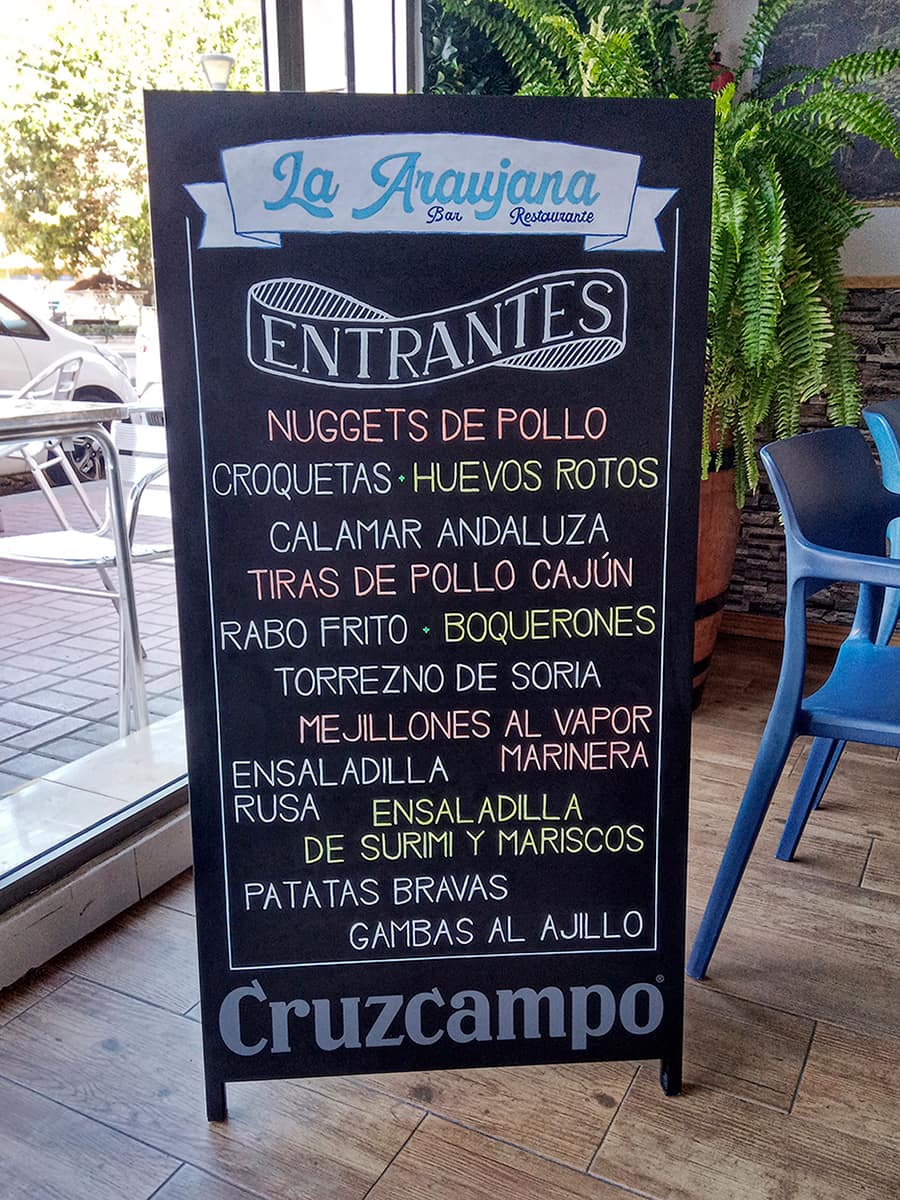 La Araujana
Bar Restaurante
ENTRANTES
NUGGETS DE POLLO
CROQUETAS · HUEVOS ROTOS
CALAMAR ANDALUZA
TIRAS DE POLLO CAJÚN
RABO FRITO · BOQUERONES
TORREZNO DE SORIA
MEJILLONES AL VAPOR
MARINERA
ENSALADILLA
RUSA
ENSALADILLA
DE SURIMI Y MARISCOS
PATATAS BRAVAS
GAMBAS AL AJILLO
Cruzcampo®